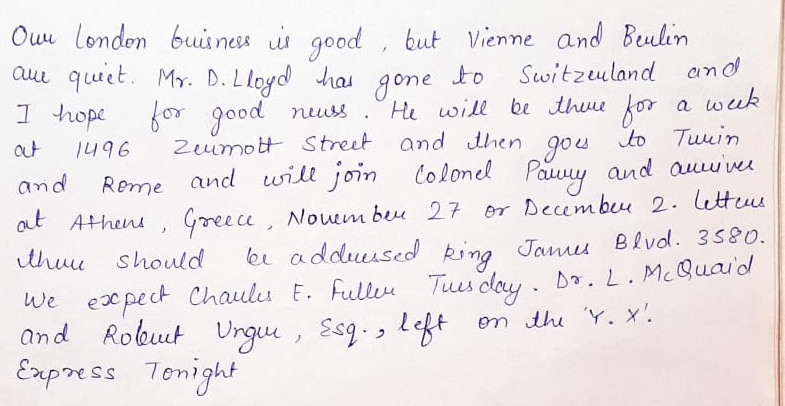 Our London buisness is good , but Vienne and Berlin
are quiet. Mr. D. Lloyd has gone to Switzerland and
I hope for good news . He will be there for a week
at 1496 Zermott Street and then goes to Turin
and Rome and will join Colonel Parry and arrives
at Athens , Greece , November 27 or December 2. Letters
there should be addressed king James Blvd. 3580.
We expect Charles E. Fuller Tuesday . Dr. L. McQuaid
and Robert Unger , Esq. , left on the 'Y. X'.
Express Tonight